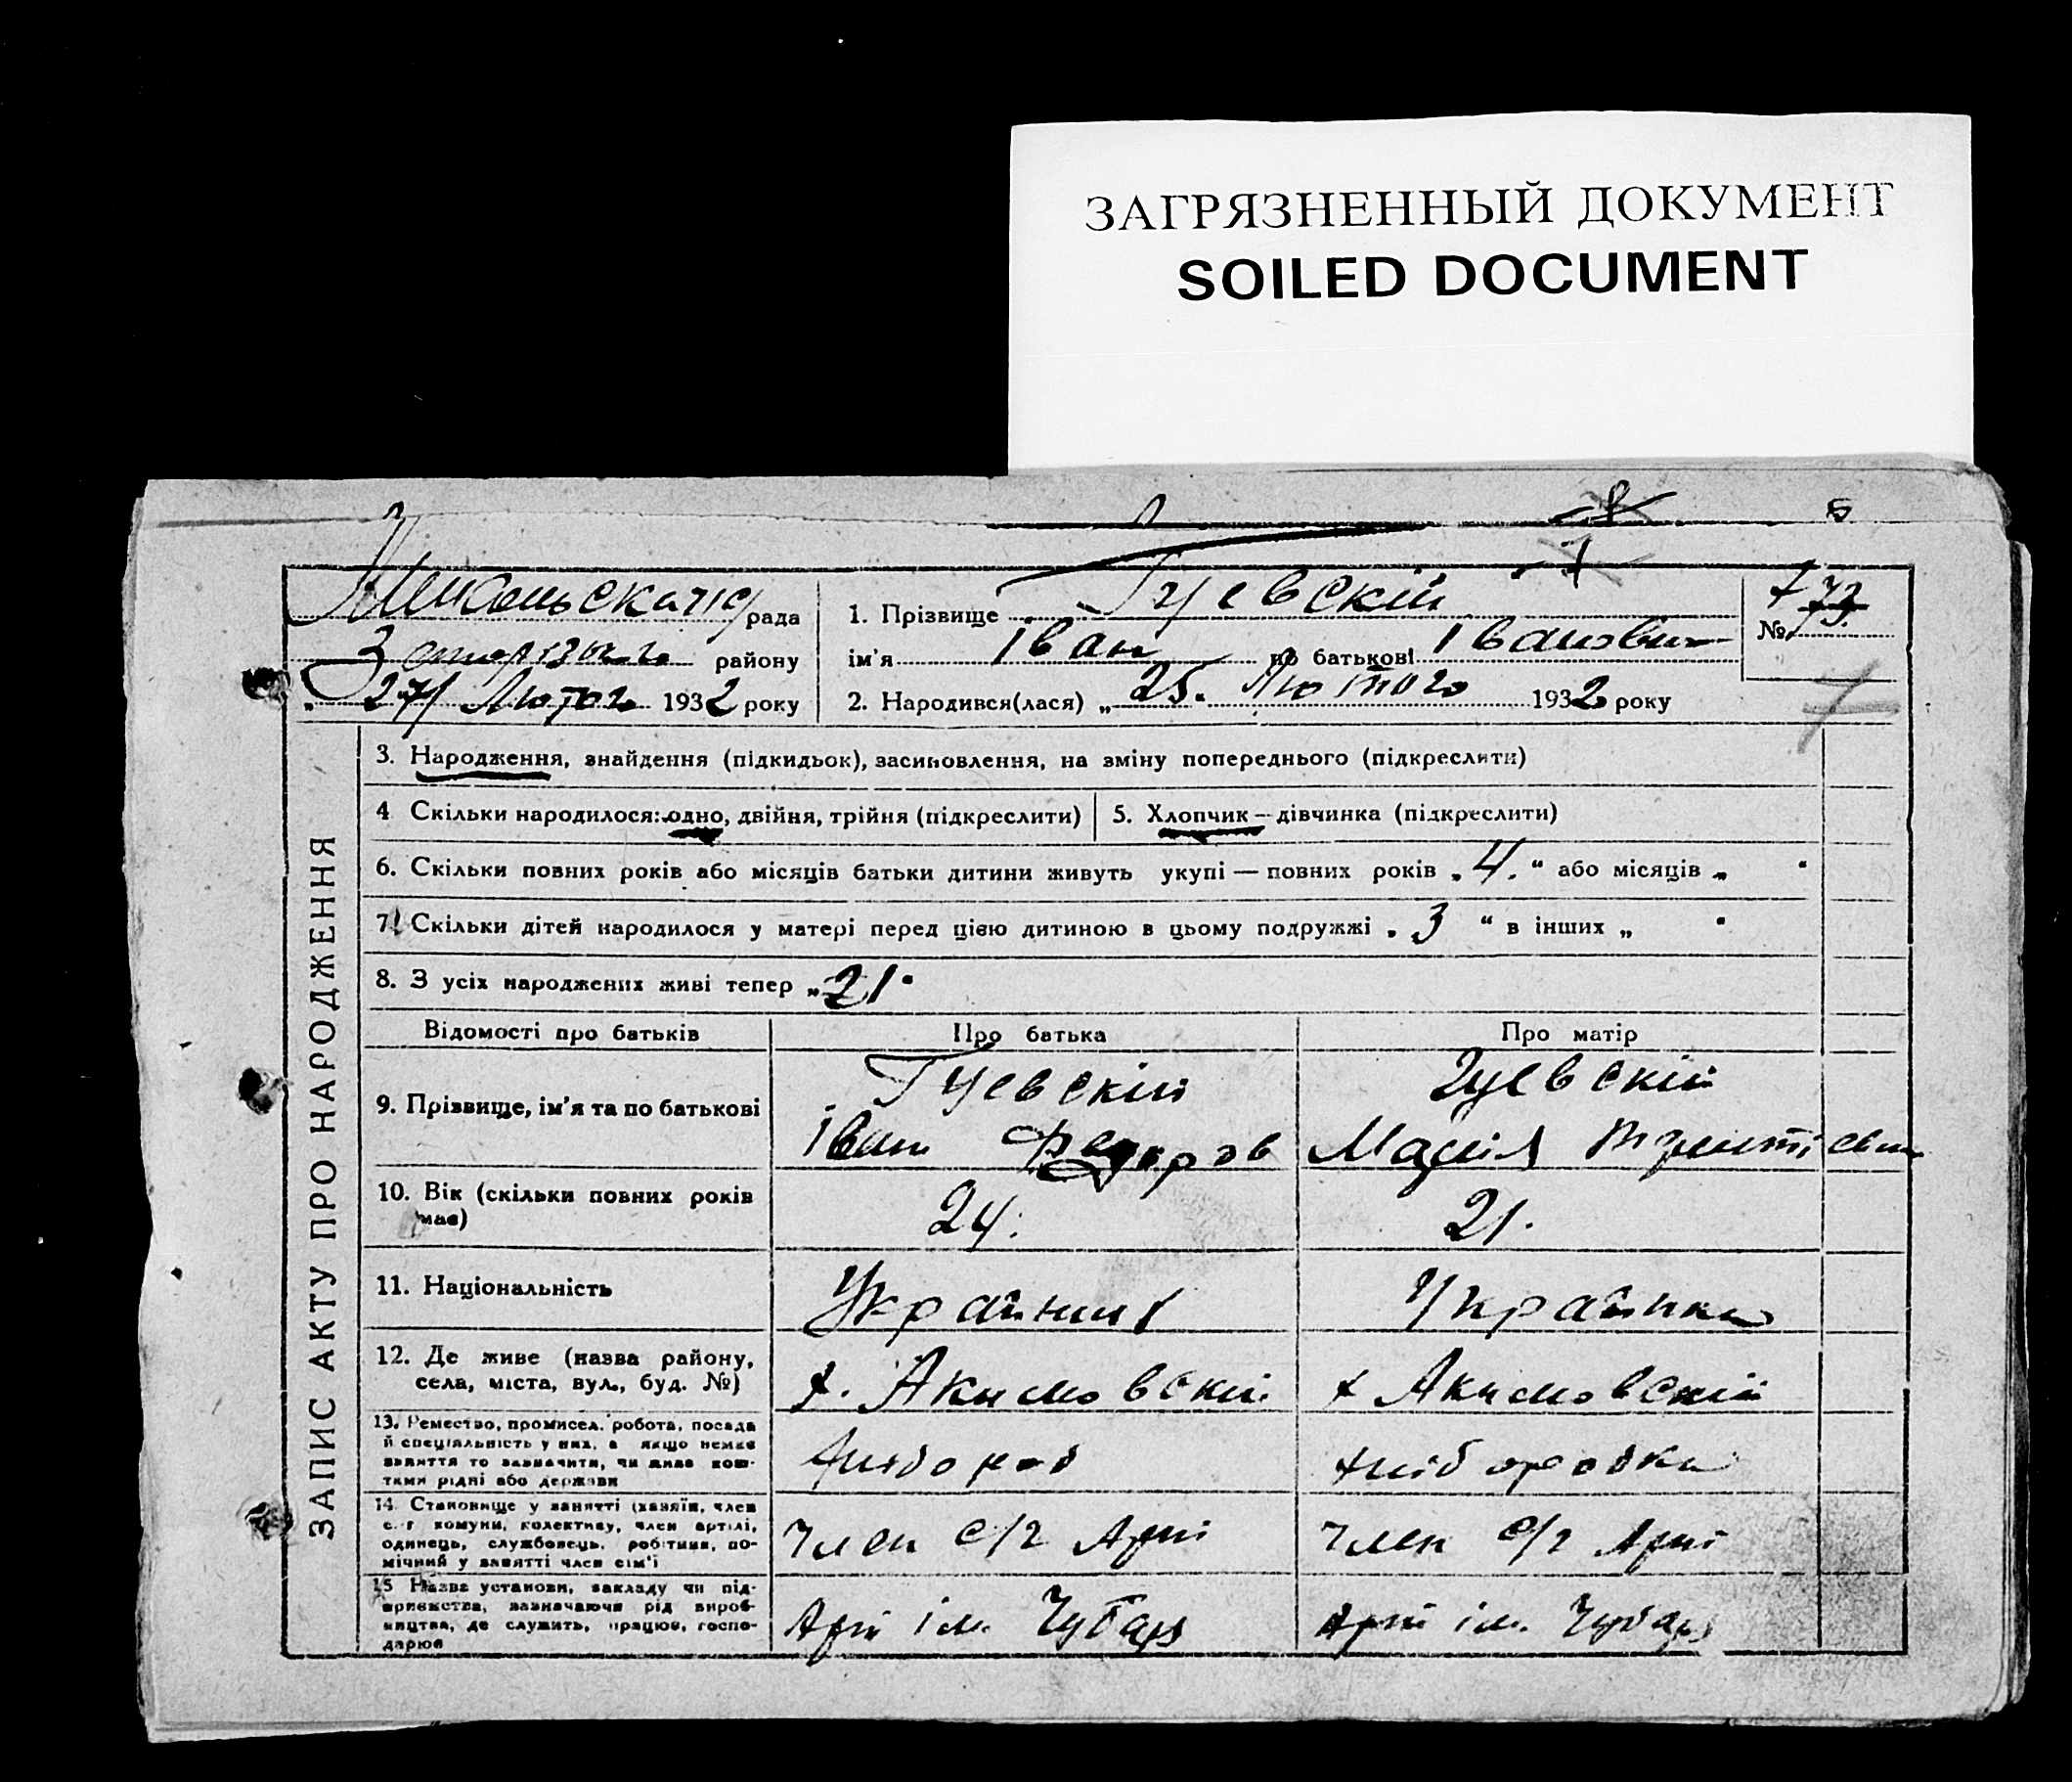 ЗАГРЯЗНЕННЫЙ ДОКУМЕНТ
SOILED DOCUMENT
рада
району
27/ Лютого 1932 року
1. Прізвище Гуєвскій
ім'я Іван по батькові Іванович
2. Народився(лася) „ 25. Лютого 1932 року
№ 73
ЗАПИС АКТУ ПРО НАРОДЖЕННЯ
3. Народження, знайдення (підкидьок), засиновлення, на зміну попереднього (підкреслити)
4 Скільки народилося: одно, двійня, трійня (підкреслити)
5. Хлопчик — дівчинка (підкреслити)
6. Скільки повних років або місяців батьки дитини живуть укупі — повних років „ 4. “ або місяців „ “
7. Скільки дітей народилося у матері перед цією дитиною в цьому подружжі „ 3 “ в інших „ “
8. З усіх народжених живі тепер „ 21 “
Відомості про батьків
Про батька
Про матір
9. Прізвище, ім'я та по батькові
Гуєвскій
Іван Федоров
Гуєвскій
Марія
10. Вік (скільки повних років має)
24.
21.
11. Національність
Україниц
Українка
12. Де живе (назва району, села, міста, вул., буд. №)
х. Акимовскій
х Акимовскій
13. Ремество, промисел, робота, посада й спеціяльність у них, а якщо немає заняття то зазначити, чи живе коштами рідні або держави
хлібороб
хліборобка
14. Становище у занятті (хазяїн, член с.-г комуни, колективу, член артілі, одинець, службовець, робітник, помічний у занятті член сім'ї
Член с/г Арті
Член с/г Арті
15 Назва установи, закладу чи підприємства, зазначаючи рід виробництва, де служить, працює, господарює
Арті ім. Чубаря
Арті ім. Чубаря